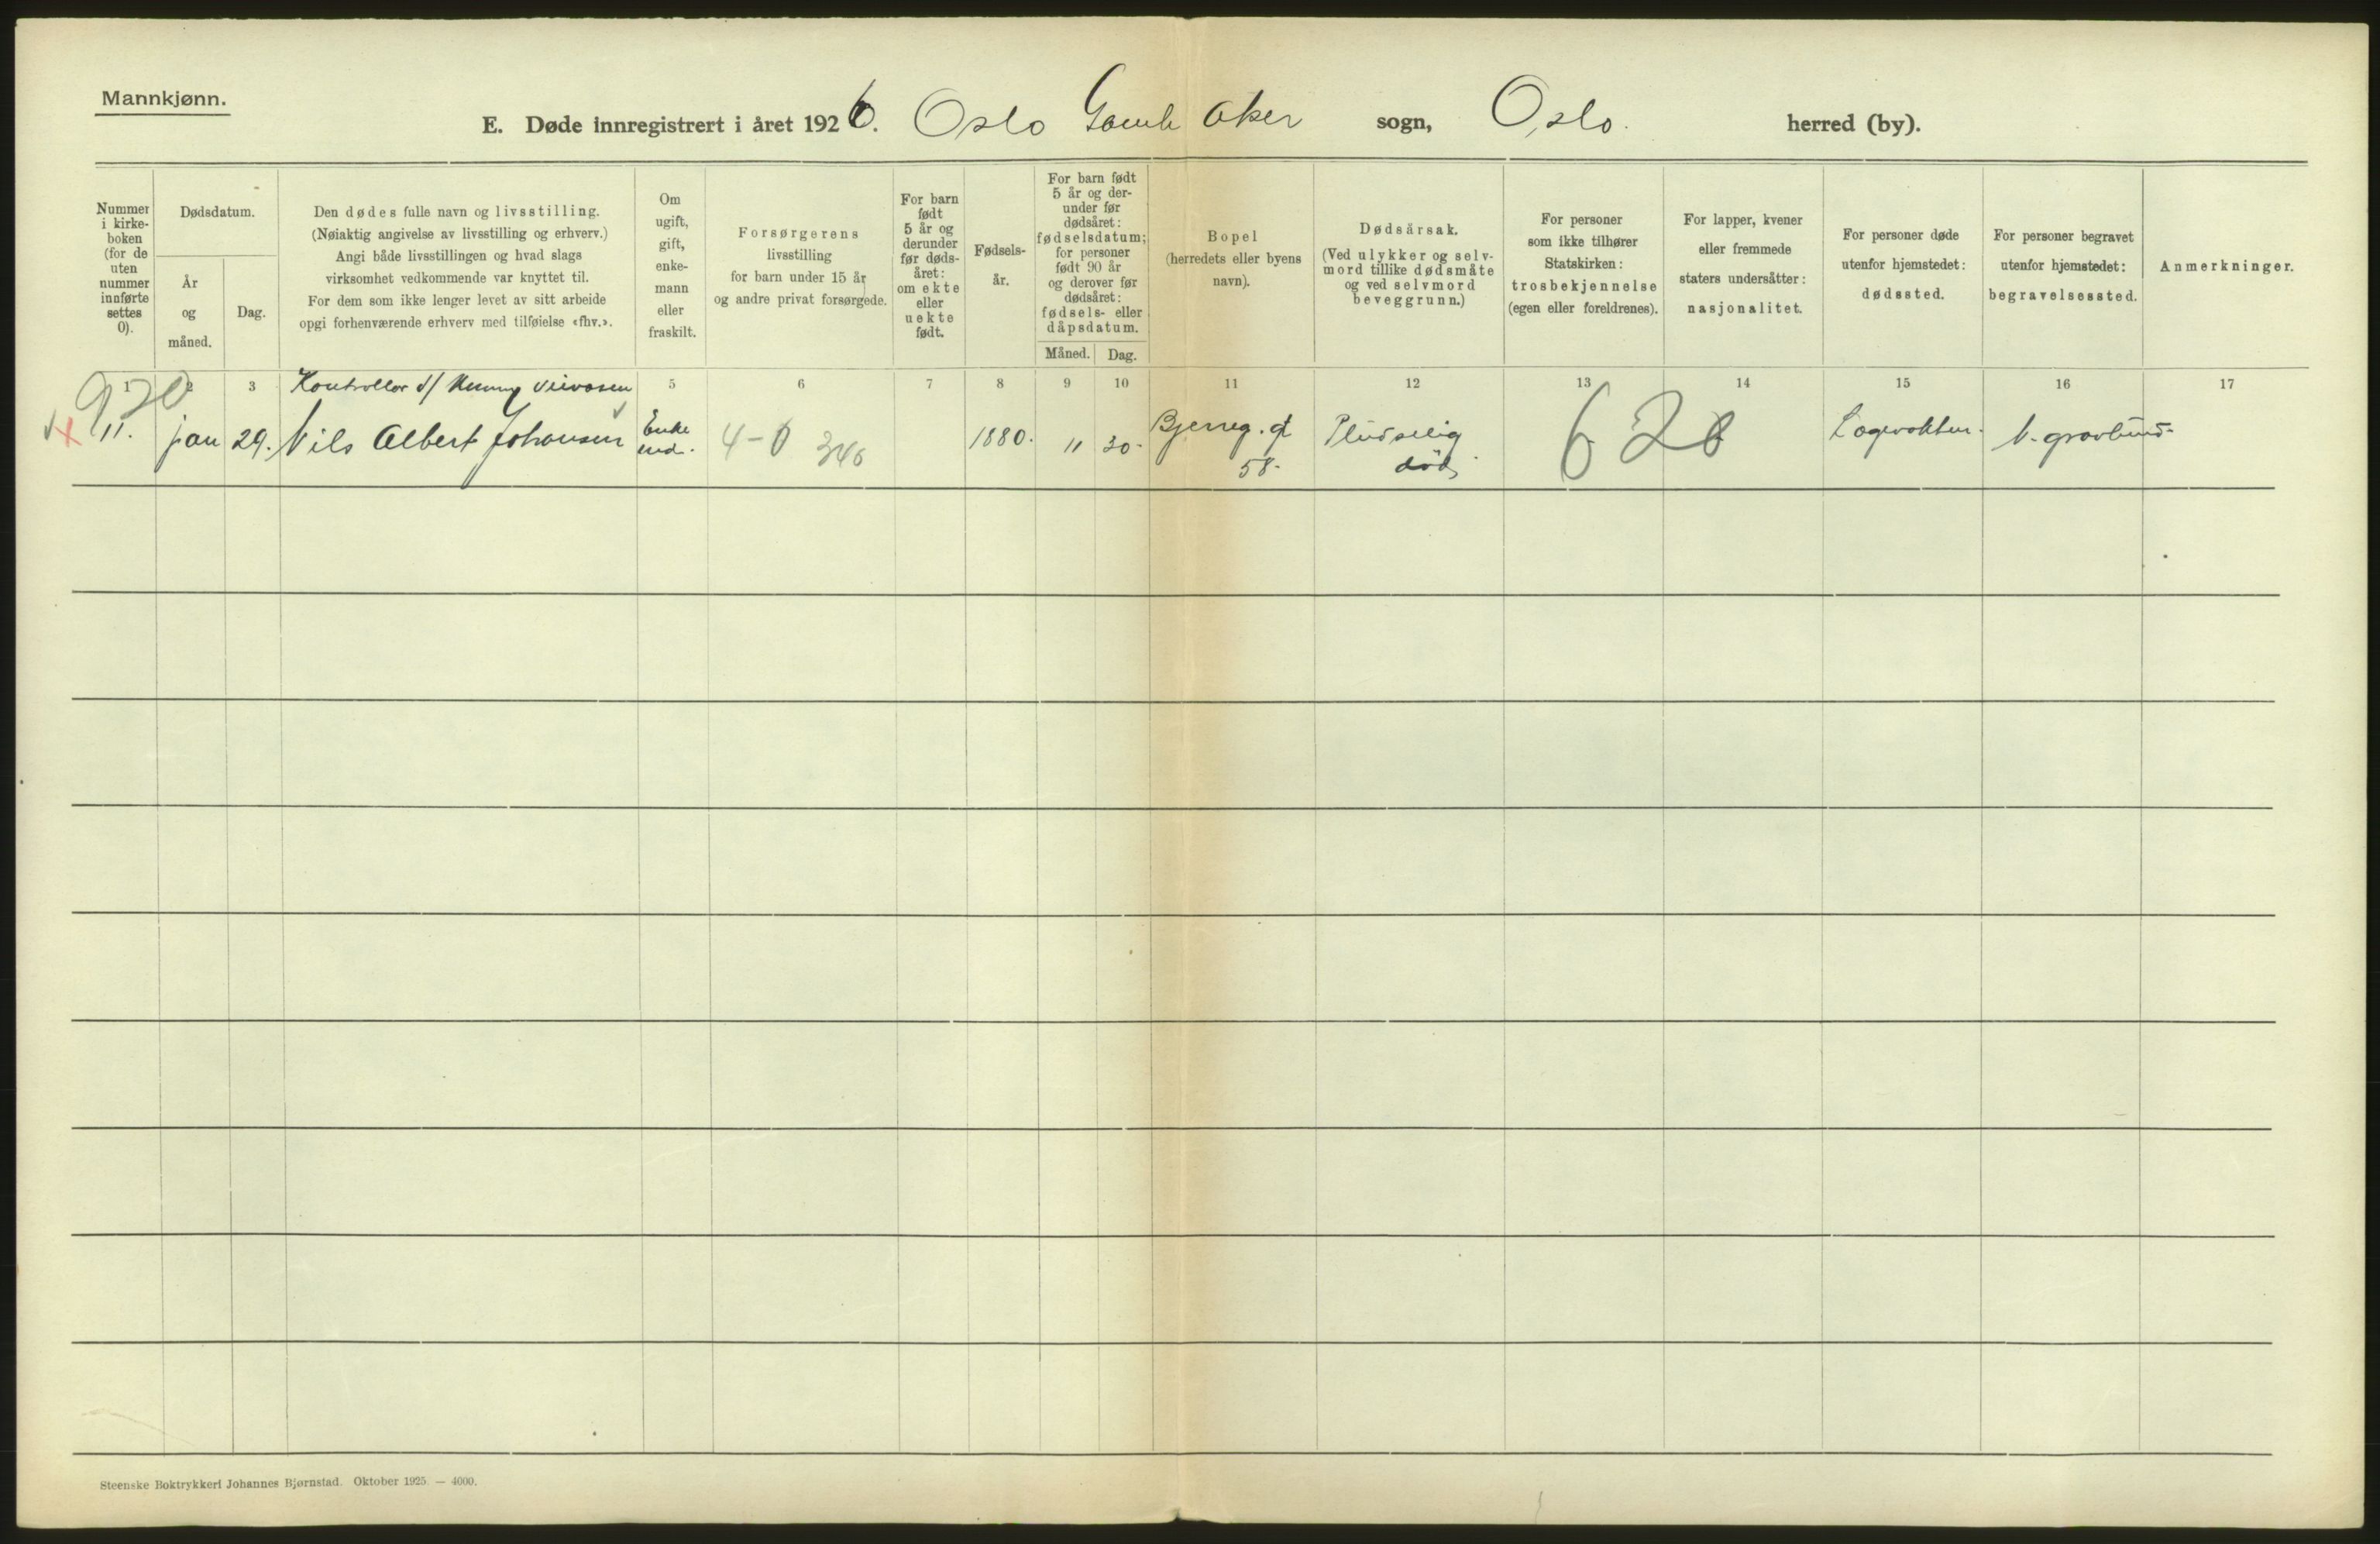 Mannkjønn.
E. Døde innregistrert i året 1926. Oslo Gamle Aker sogn, Oslo. herred (by).
Nummer i kirke-boken (for de uten nummer innførte settes 0).
Dødsdatum.
År og måned.
Dag.
Den dødes fulle navn og livsstilling.
(Nøiaktig angivelse av livsstilling og erhverv.)
Angi både livsstillingen og hvad slags
virksomhet vedkommende var knyttet til.
For dem som ikke lenger levet av sitt arbeide
opgi forhenværende erhverv med tilføielse «fhv.».
Om
ugift,
gift,
enke-
mann
eller
fraskilt.
Forsørgerens
livsstilling
for barn under 15 år
og andre privat forsørgede.
For barn
født
5 år og
derunder
før døds-
året:
om ekte
eller
uekte
født.
Fødsels-
år.
For barn født
5 år og der-
under før
dødsåret:
fødselsdatum;
for personer
født 90 år
og derover før
dødsåret:
fødsels- eller
dåpsdatum.
Måned. Dag.
Bopel
(herredets eller byens
navn).
Dødsårsak.
(Ved ulykker og selv-
mord tillike dødsmåte
og ved selvmord
beveggrunn.)
For personer
som ikke tilhører
Statskirken:
trosbekjennelse
(egen eller foreldrenes).
For lapper, kvener
eller fremmede
staters undersåtter:
nasjonalitet.
For personer døde
utenfor hjemstedet:
dødssted.
For personer begravet
utenfor hjemstedet:
begravelsessted.
Anmerkninger.
1 2 3 5 6 7 8 9 10 11 12 13 14 15 16 17
920
Kontrollør v/
11. jan 29. Nils Albert Johansen Enke 4-0 346 1880. 11 30- Pludselig 620
58- død
Steenske Boktrykkeri Johannes Bjørnstad. Oktober 1925. — 4000.